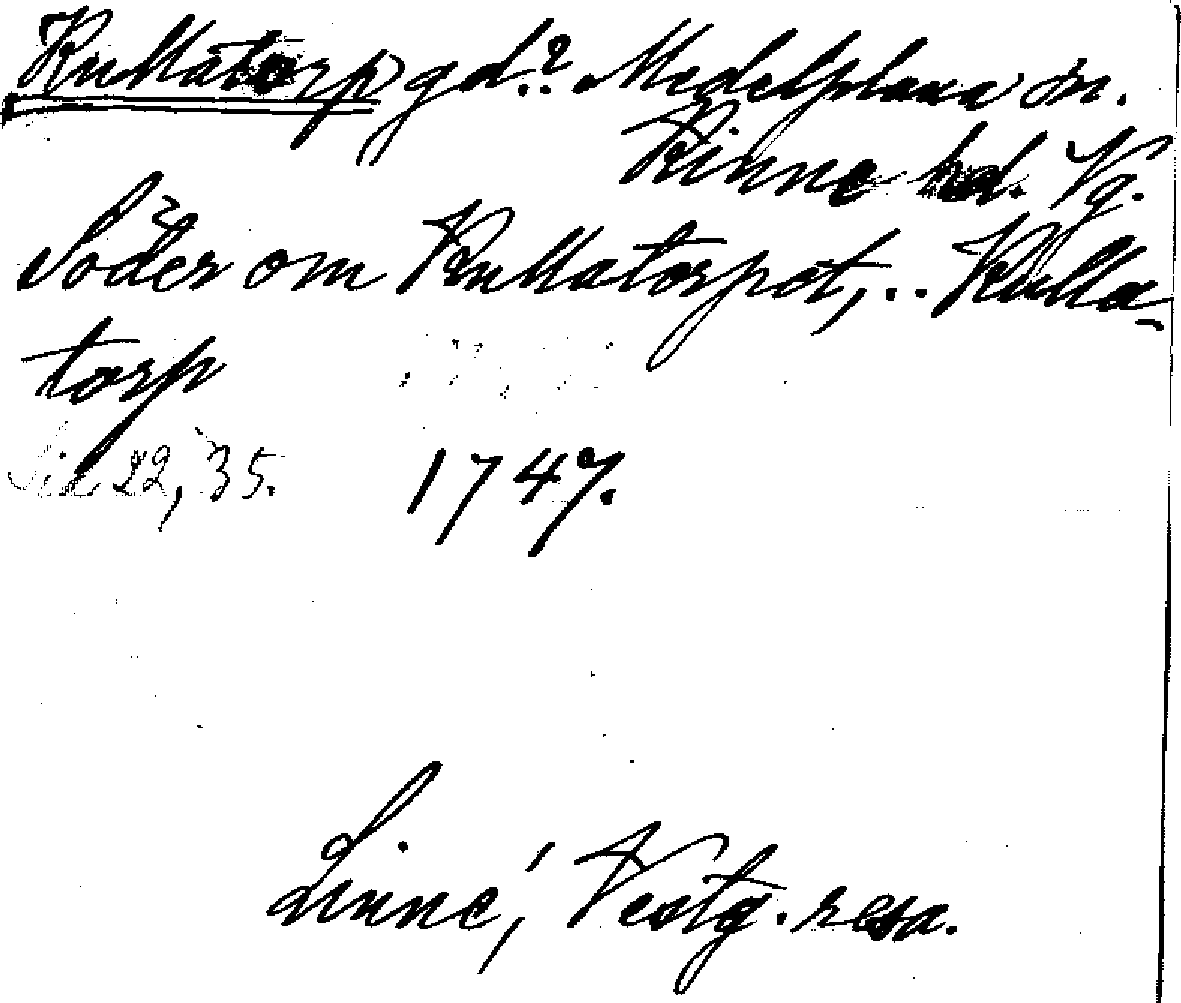 Kullatorp gd.? Medelplana sn.
Kinne hd. Vg.
Söder om Kullatorpet,.. Kulla-
torp
Sid 22, 35. 1747.
Linné, Vestg. resa.